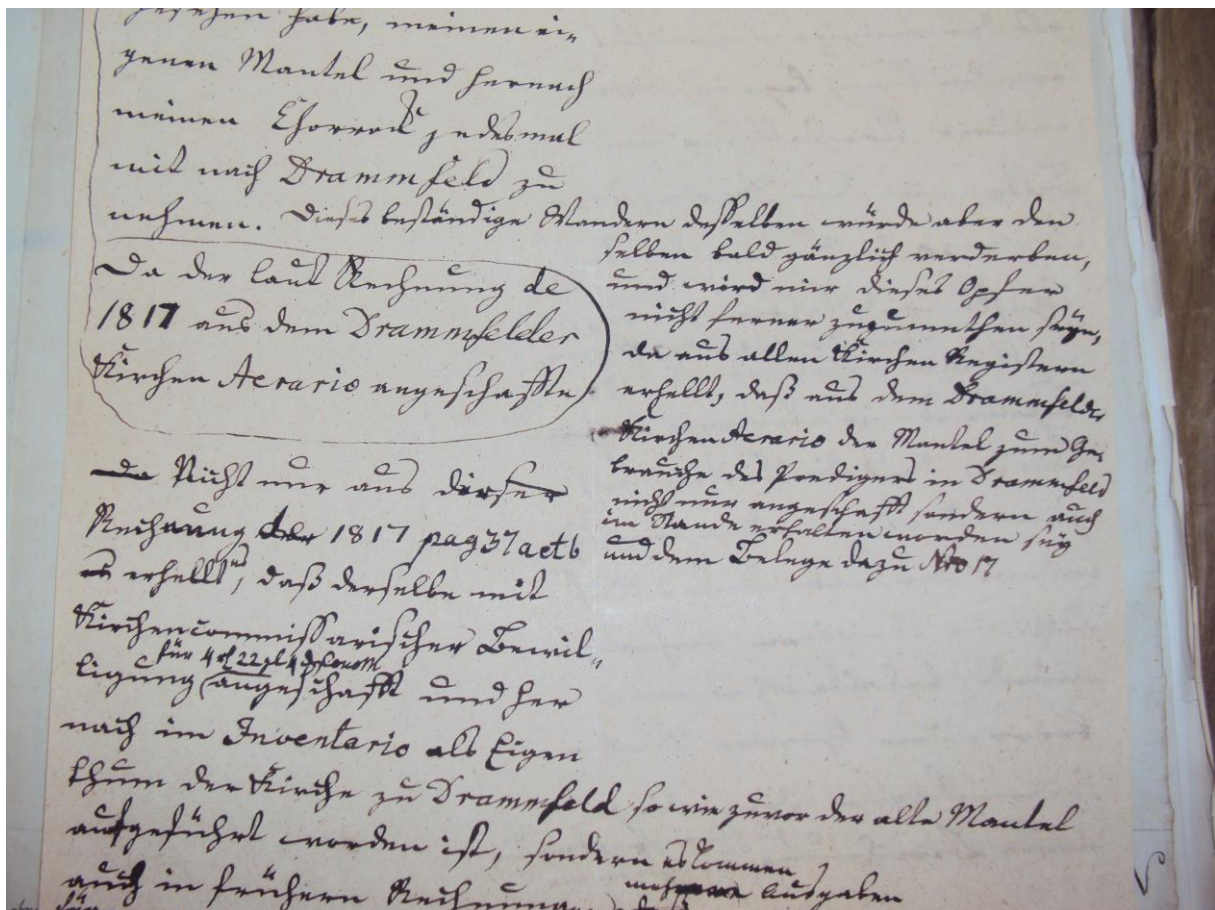 gesehen habe, meinen ei=
genen Mantel und hernach
meinen Chorrock jedesmal
mit nach Drammfeld zu
nehmen. Dieses beständige Wandern desselben würde aber den
selben bald gänzlich verderben,
und wird mir dieses Opfer
nicht ferner zuzumuthen seyn,
da aus allen Kirchen Registern
erhellt, daß aus dem Drammfelder
Kirchen Aerario der Mantel zum Ge=
brauche des Predigers in Drammfeld
nicht nur angeschafft sondern auch
im Stande erhalten worden sey
und dem Belege dazu Nro 17
Da der laut Rechnung de
1817 aus dem Drammfelder
Kirchen Aerario angeschaffte
Da Nicht nur aus dieser
Rechnung der 1817 pag 37 act b
es erhellt, daß derselbe mit
Kirchencommissarischer Bewil=
für 4 22 4
ligung angeschafft und her
nach im Inventario als Eigen
thum der Kirche zu Drammfeld so wie zuvor der alte Mantel
aufgeführt worden ist, sondern es kommen
auch in frühern Rechnungen Ausgaben
für